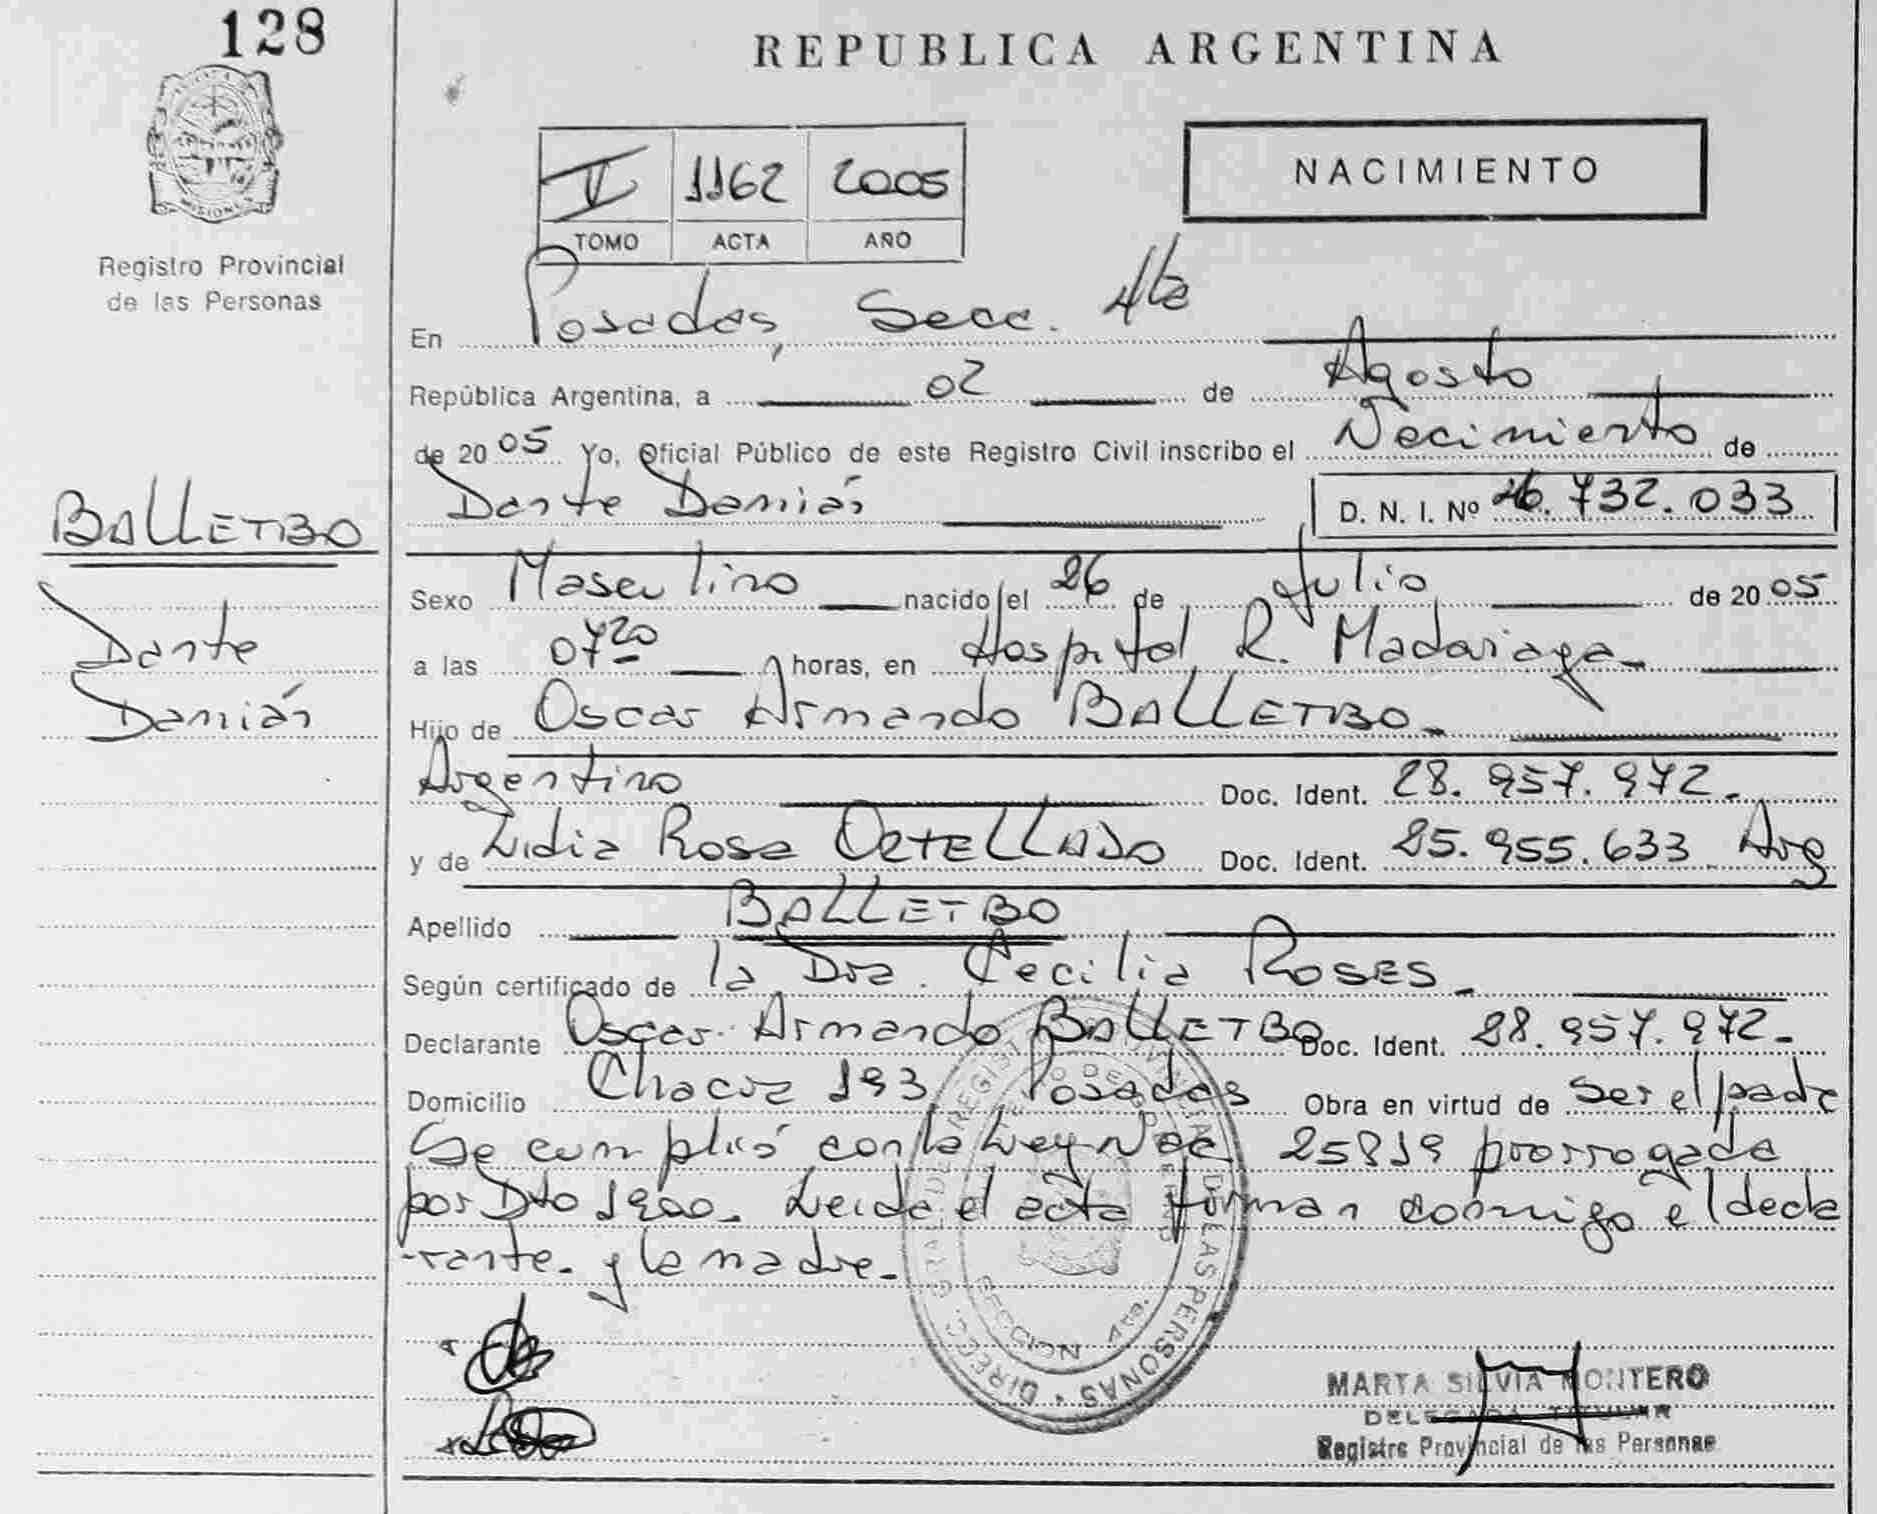 128
MISIONES
Registro Provincial
de las Personas
BALLETBO
Dante
Damián
REPUBLICA ARGENTINA
NACIMIENTO
V 1162 2005
TOMO ACTA AÑO
En Posadas, Secc. 4ta
República Argentina, a 02 de Agosto
de 2005 Yo, Oficial Público de este Registro Civil inscribo el Nacimiento de
Dante Damián D. N. I. Nº 46.732.033
Sexo Masculino nacido el 26 de Julio de 2005
a las 0720 horas, en Hospital R. Madariaga
Hijo de Oscar Armando BALLETBO
Argentino Doc. Ident. 28.957.972.
y de Lidia Rosa ORTELLADO Doc. Ident. 25.955.633 Arg
Apellido BALLETBO
Según certificado de la Dra. Cecilia ROSES
Declarante Oscar Armando BALLETBO Doc. Ident. 28.957.972-
Domicilio Chacra 193 Posadas Obra en virtud de ser el padre
Se cumplió con la Ley Nac 25819 prorrogada
por Dto 1900. Leida el acta firman conmigo el decla
-rante y la madre.
DIRECC. GRAL. DE REGISTRO PROVINCIAL DE LAS PERSONAS
SECCION 4ta.
MARTA SILVIA MONTERO
DELEGADA TITULAR
Registro Provincial de las Personas